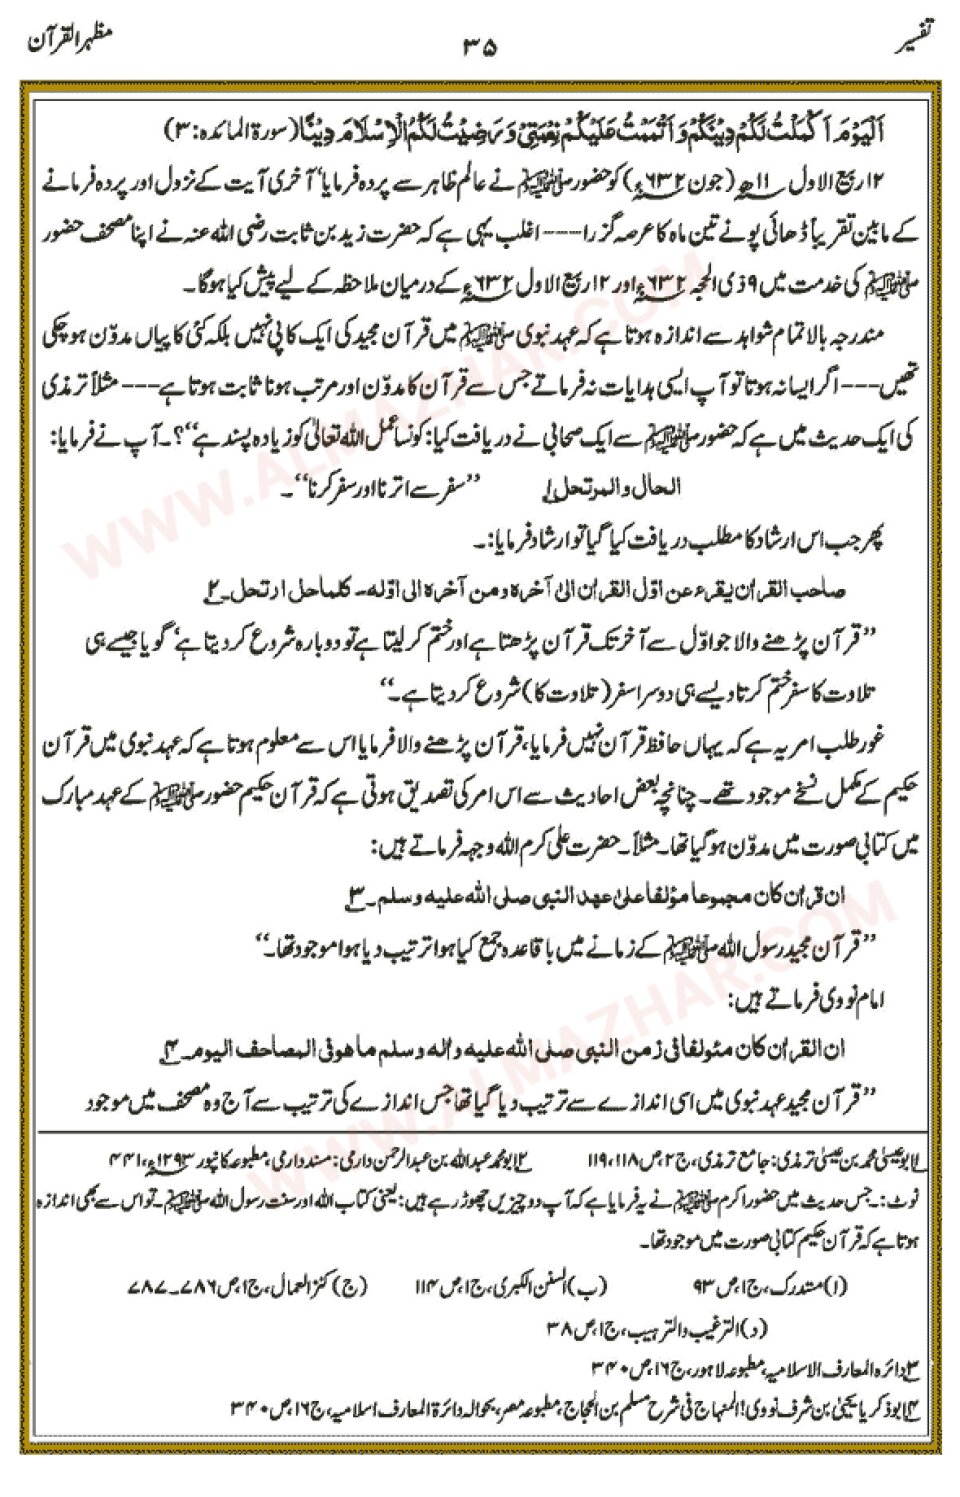 تفسیر
۳۵
مظہر القرآن
اَلْیَوْمَ اَکْمَلْتُ لَکُمْ دِیْنَکُمْ وَاَتْمَمْتُ عَلَیْکُمْ نِعْمَتِیْ وَرَضِیْتُ لَکُمُ الْاِسْلَامَ دِیْنًا (سورۃ المائدہ: ۳)
۱۲ ربیع الاول ۱۱ھ (جون ۶۳۲ء) کو حضور ﷺ نے عالم ظاہر سے پردہ فرمایا، آخری آیت کے نزول اور پردہ فرمانے
کے مابین تقریباً ڈھائی پونے تین ماہ کا عرصہ گزرا --- اغلب یہی ہے کہ حضرت زید بن ثابت رضی اللہ عنہ نے اپنا مصحف حضور
ﷺ کی خدمت میں ۹ ذی الحجہ ۶۳۲ء اور ۱۲ ربیع الاول ۶۳۲ء کے درمیان ملاحظہ کے لیے پیش کیا ہوگا۔
مندرجہ بالا تمام شواہد سے اندازہ ہوتا ہے کہ عہد نبوی ﷺ میں قرآن مجید کی ایک کاپی نہیں بلکہ کئی کاپیاں مدوّن ہو چکی
تھیں --- اگر ایسا نہ ہوتا تو آپ ایسی ہدایات نہ فرماتے جس سے قرآن کا مدوّن اور مرتب ہونا ثابت ہوتا ہے --- مثلاً ترمذی
کی ایک حدیث میں ہے کہ حضور ﷺ سے ایک صحابی نے دریافت کیا: کونسا عمل اللہ تعالیٰ کو زیادہ پسند ہے‘‘؟۔ آپ نے فرمایا:
الحال والمرتحل ۱؎ ’’سفر سے اترنا اور سفر کرنا‘‘۔
پھر جب اس ارشاد کا مطلب دریافت کیا گیا تو ارشاد فرمایا:۔
صاحب القراٰن یقرء عن اوّل القراٰن الیٰ آخرہ ومن آخرہ الی اوّلہ۔ کلما حل ارتحل۔ ۲؎
’’قرآن پڑھنے والا جو اوّل سے آخر تک قرآن پڑھتا ہے اور ختم کر لیتا ہے تو دوبارہ شروع کر دیتا ہے‘ گویا جیسے ہی
تلاوت کا سفر ختم کرتا ویسے ہی دوسرا سفر (تلاوت کا) شروع کر دیتا ہے۔‘‘
غور طلب امر یہ ہے کہ یہاں حافظ قرآن نہیں فرمایا، قرآن پڑھنے والا فرمایا اس سے معلوم ہوتا ہے کہ عہد نبوی میں قرآن
حکیم کے مکمل نسخے موجود تھے۔ چنانچہ بعض احادیث سے اس امر کی تصدیق ہوتی ہے کہ قرآن حکیم حضور ﷺ کے عہد مبارک
میں کتابی صورت میں مدوّن ہو گیا تھا۔ مثلاً۔ حضرت علی کرم اللہ وجہہ فرماتے ہیں:
ان قراٰن کان مجموعا مؤلفا علیٰ عھد النبی صلی اللہ علیہ وسلم۔ ۳؎
’’قرآن مجید رسول اللہ ﷺ کے زمانے میں باقاعدہ جمع کیا ہوا ترتیب دیا ہوا موجود تھا۔‘‘
امام نووی فرماتے ہیں:
ان القراٰن کان مئولفا فی زمن النبی صلی اللہ علیہ واٰلہ وسلم ما ھو فی المصاحف الیوم۔ ۴؎
’’قرآن مجید عہد نبوی میں اسی انداز ے سے ترتیب دیا گیا تھا جس انداز ے کی ترتیب سے آج وہ مصحف میں موجود
۱؎ ابوعیسیٰ محمد بن عیسیٰ ترمذی: جامع ترمذی، ج ۲، ص ۱۱۸، ۱۱۹ ۲؎ ابومحمد عبداللہ بن عبدالرحمن دارمی: مسند دارمی، مطبوعہ کانپور ۱۲۹۳ء، ۴۴۱
نوٹ:۔ جس حدیث میں حضور اکرم ﷺ نے یہ فرمایا ہے کہ آپ دو چیزیں چھوڑ رہے ہیں: یعنی کتاب اللہ اور سنت رسول اللہ ﷺ تو اس سے بھی اندازہ
ہوتا ہے کہ قرآن حکیم کتابی صورت میں موجود تھا۔
(ا) مستدرک، ج ۱، ص ۹۳ (ب) السنن الکبری، ج ۱، ص ۱۱۴ (ج) کنز العمال، ج ۱، ص ۷۸۶۔۷۸۷
(د) الترغیب والترہیب، ج ۱، ص ۳۸
۳؎ دائرہ المعارف الاسلامیہ، مطبوعہ لاہور، ج ۱۶، ص ۳۴۰
۴؎ ابوذکریا یحییٰ بن شرف نووی! المنہاج فی شرح مسلم بن الحجاج، مطبوعہ مصر، بحوالہ دائرۃ المعارف اسلامیہ، ج ۱۶، ص ۳۴۰
WWW.ALMAZHAR.COM
WWW.ALMAZHAR.COM